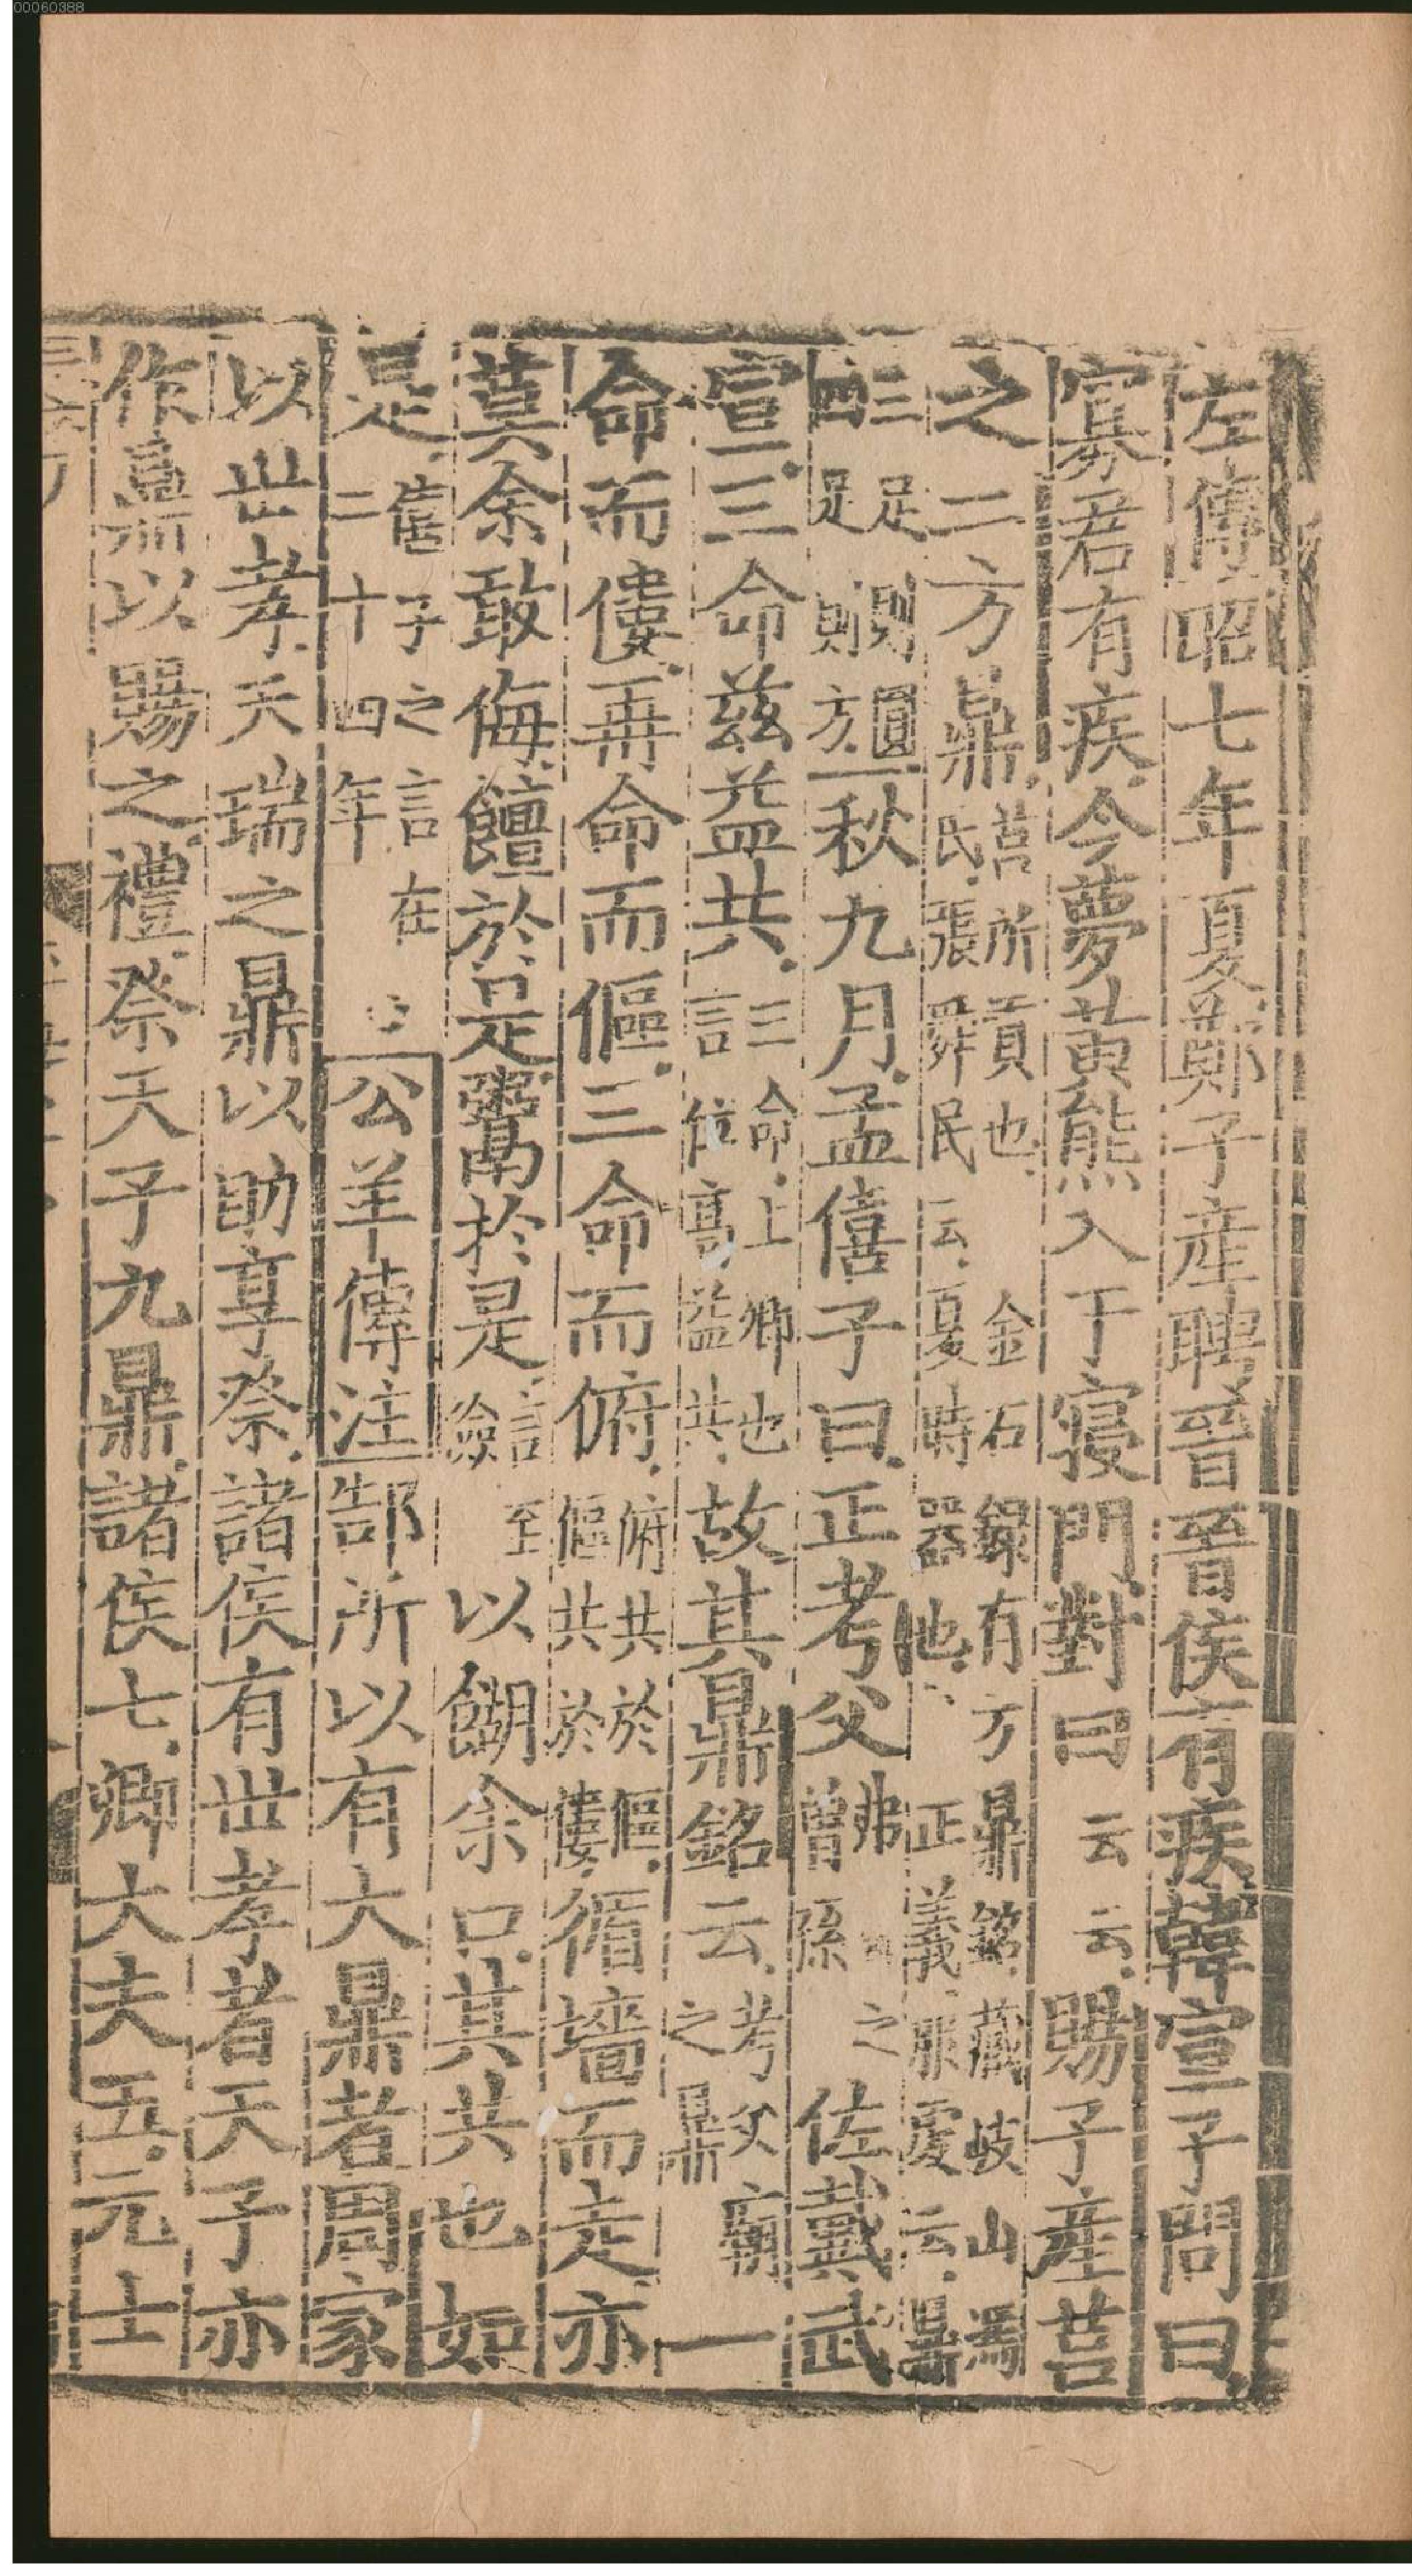 00060388
左傳昭七年夏鄭子産聘晉晉侯有疾韓宣子問曰
寡君有疾今夢黃熊入于寢門對曰云云賜子產莒
之二方鼎莒所貢也 金石録有方鼎銘藏岐山馮
氏張舜民云夏時器也 正義服虔云鼎
三足則圓
四足則方秋九月孟僖子曰正考父弗 之
曾孫佐戴武
宣三命茲益共三命上卿也
言位高益共故其鼎銘云考父廟
之鼎一
命而僂再命而傴三命而俯俯共於傴
傴共於僂循墻而走亦
莫余敢侮饘於是鬻於是言至
儉以餬余口其共也如
是僖子之言在
二十四年公羊傳注郜所以有大鼎者周家
以世孝天瑞之鼎以助享祭諸侯有世孝者天子亦
作鼎以賜之禮祭天子九鼎諸侯七卿大夫五元士